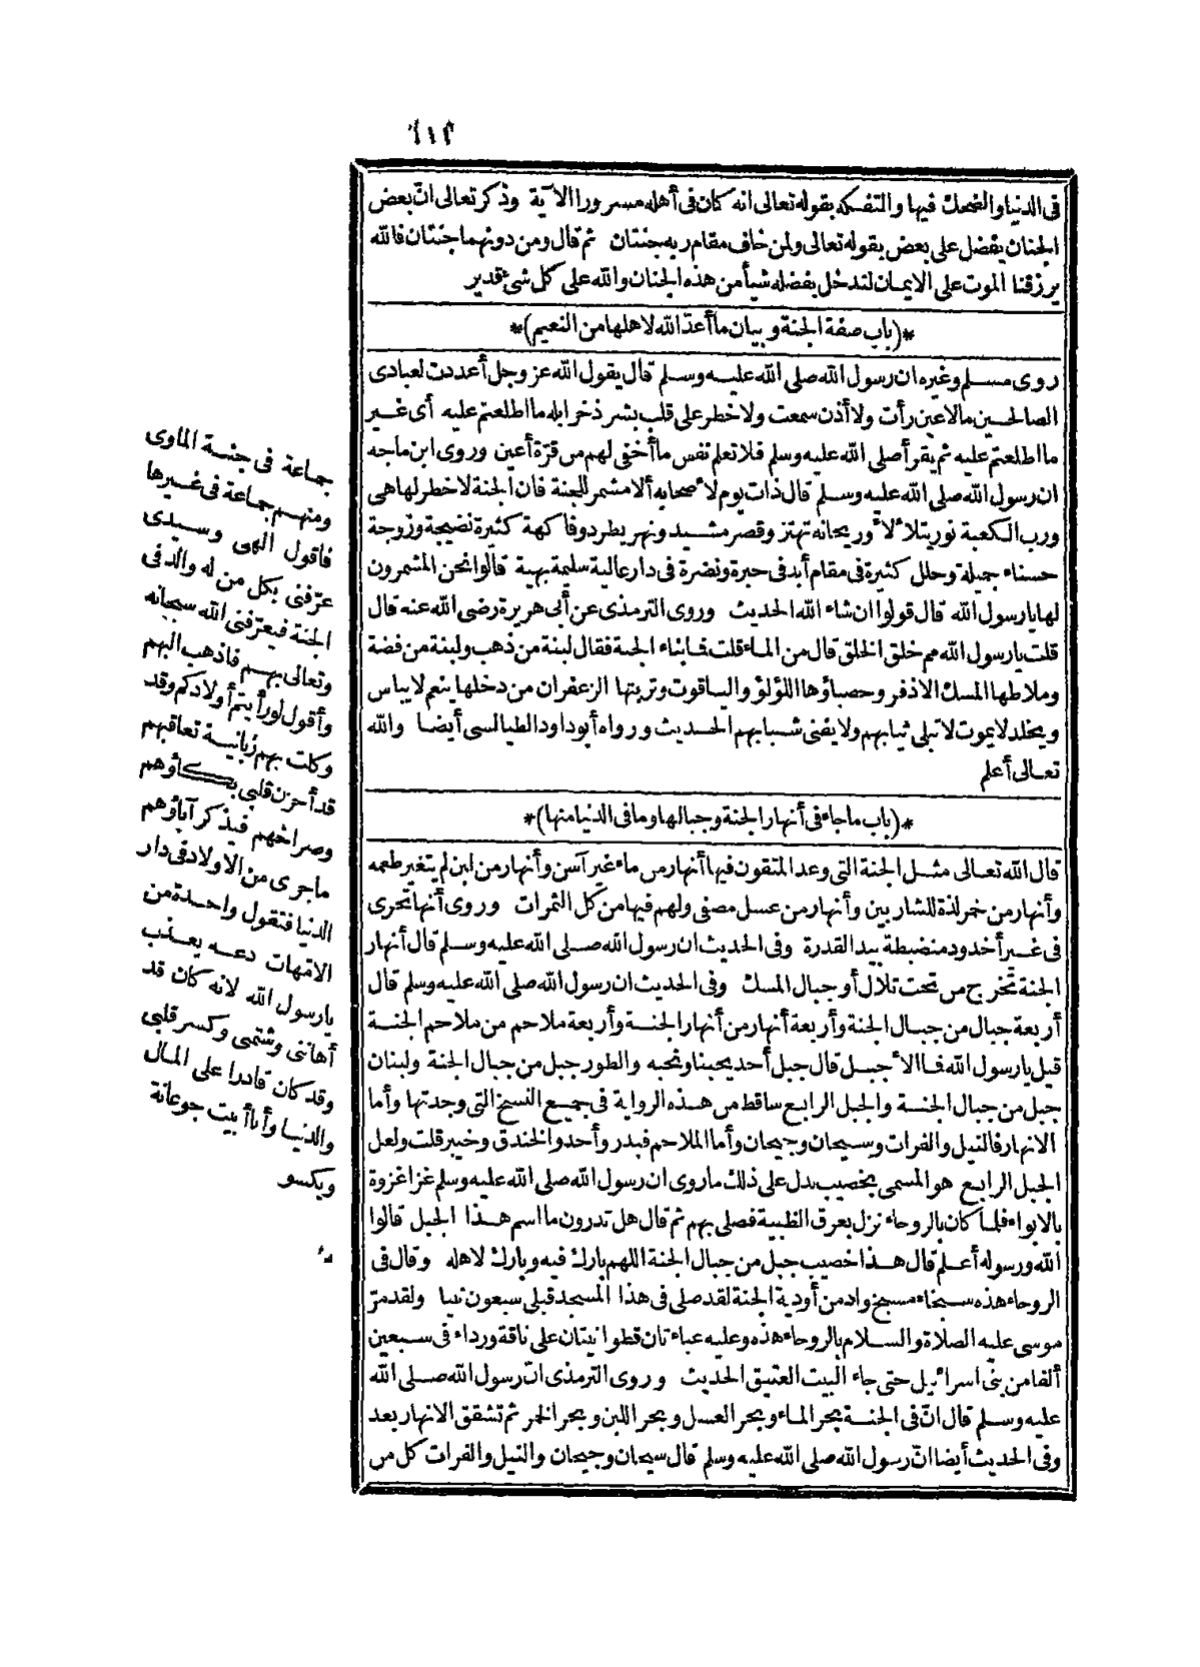 ١١٢
فى الدنيا والضحك فيها والتفكه بقوله تعالى انه كان فى أهله مسرورا الآية وذكر تعالى انّ بعض
الجنان يفضل على بعض بقوله تعالى ولمن خاف مقام ربه جنتان ثم قال ومن دونهما جنتان فالله
يرزقنا الموت على الايمان لندخل بفضله شيأ من هذه الجنان والله على كل شئ قدير
*(باب صفة الجنة وبيان ما أعدّ الله لاهلها من النعيم)*
روى مسلم وغيره ان رسول الله صلى الله عليه وسلم قال يقول الله عز وجل أعددت لعبادى
الصالحين مالا عين رأت ولا أذن سمعت ولا خطر على قلب بشر ذخرا بله ما اطلعتم عليه أى غير
ما اطلعتم عليه ثم يقرأ صلى الله عليه وسلم فلا تعلم نفس ما أخفى لهم من قرّة أعين وروى ابن ماجه
ان رسول الله صلى الله عليه وسلم قال ذات يوم لأصحابه ألا مشمر للجنة فان الجنة لا خطر لها هى
ورب الكعبة نور يتلألأ وريحانه تهتز وقصر مشيد ونهر يطرد وفاكهة كثيرة نضيجة وزوجة
حسناء جميلة وحلل كثيرة فى مقام أبد فى حبرة ونضرة فى دار عالية سليمة بهية قالوا نحن المشمرون
لها يارسول الله قال قولوا ان شاء الله الحديث وروى الترمذى عن أبى هريرة رضى الله عنه قال
قلت يارسول الله مم خلق الخلق قال من الماء قلت فابناء الجنة فقال لبنة من ذهب ولبنة من فضة
وملاطها المسك الاذفر وحصباؤها اللؤلؤ والياقوت وتربتها الزعفران من دخلها ينعم لايباس
ويخلد لايموت لاتبلى ثيابهم ولا يفنى شبابهم الحديث ورواه أبو داود الطيالسى أيضا والله
تعالى أعلم
*(باب ماجاء فى أنهار الجنة وجبالها وما فى الدنيا منها)*
قال الله تعالى مثل الجنة التى وعد المتقون فيها أنهار من ماء غير آسن وأنهار من لبن لم يتغير طعمه
وأنهار من خمر لذة للشاربين وأنهار من عسل مصفى ولهم فيها من كل الثمرات وروى أنها تجرى
فى غير أخدود منضبطة بيد القدرة وفى الحديث ان رسول الله صلى الله عليه وسلم قال أنهار
الجنة تخرج من تحت تلال أو جبال المسك وفى الحديث ان رسول الله صلى الله عليه وسلم قال
أربعة جبال من جبال الجنة وأربعة أنهار من أنهار الجنة وأربعة ملاحم من ملاحم الجنة
قيل يارسول الله فما الأجبل قال جبل أحد يحبنا ونحبه والطور جبل من جبال الجنة ولبنان
جبل من جبال الجنة والجبل الرابع ساقط من هذه الرواية فى جميع النسخ التى وجدتها وأما
الانهار فالنيل والفرات وسيحان وجيحان وأما الملاحم فبدر وأحد والخندق وخيبر قلت ولعل
الجبل الرابع هو المسمى بخصيب يدل على ذلك ماروى ان رسول الله صلى الله عليه وسلم غزا غزوة
بالابواء فلما كان بالروحاء نزل بعرق الظبية فصلى بهم ثم قال هل تدرون ما اسم هذا الجبل قالوا
الله ورسوله أعلم قال هذا خصيب جبل من جبال الجنة اللهم بارك فيه وبارك لاهله وقال فى
الروحاء هذه واد من أودية الجنة لقد صلى فى هذا المسجد قبلى سبعون نبيا ولقد مرّ
موسى عليه الصلاة والسلام بالروحاء هذه وعليه عباءتان قطوانيتان على ناقة ورداء فى سبعين
ألفا من بنى اسرائيل حتى جاء البيت العتيق الحديث وروى الترمذى انّ رسول الله صلى الله
عليه وسلم قال انّ فى الجنة بحر الماء وبحر العسل وبحر اللبن وبحر الخمر ثم تشقق الانهار بعد
وفى الحديث أيضا انّ رسول الله صلى الله عليه وسلم قال سيحان وجيحان والنيل والفرات كل من
جماعة فى جنة الماوى
ومنهم جماعة فى غيرها
فاقول الهى وسيدى
عرّفنى بكل من له والد فى
الجنة فيعرّفنى الله سبحانه
وتعالى بهم فاذهب اليهم
وأقول لو رأيتم أولادكم وقد
وكلت بهم زبانية تعاقبهم
قد أحزن قلبى بكاؤهم
وصراخهم فيذكر آباؤهم
ماجرى من الاولاد فى دار
الدنيا فتقول واحدة من
الامّهات دعه يعذب
يارسول الله لانه كان قد
أهاننى وشتمنى وكسر قلبى
وقد كان قادرا على المال
والدنيا وأنا أبيت جوعانة
ويكسو